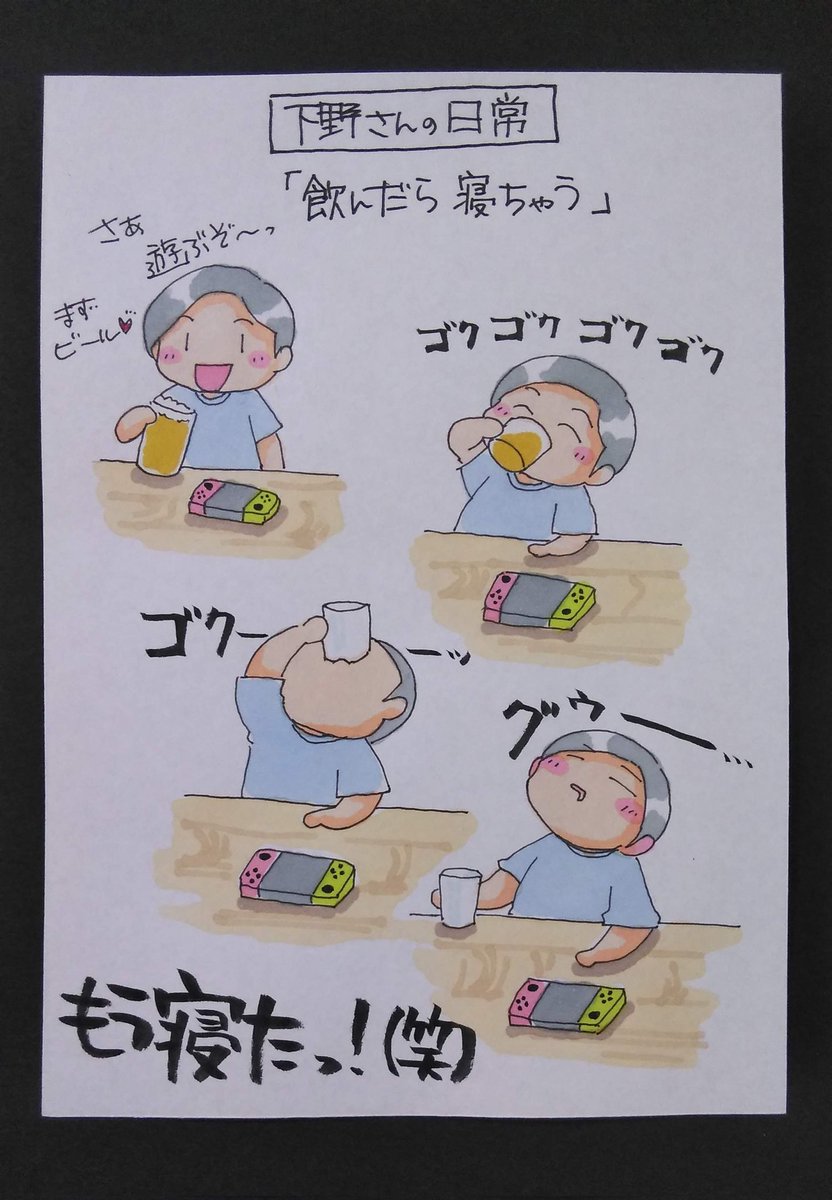 下野さんの日常
「飲んだら寝ちゃう」
さあ
遊ぶぞ〜っ
まず
ビール♥
ゴクゴクゴクゴク
ゴクーーッ
グゥー…
もう寝たっ!(笑)